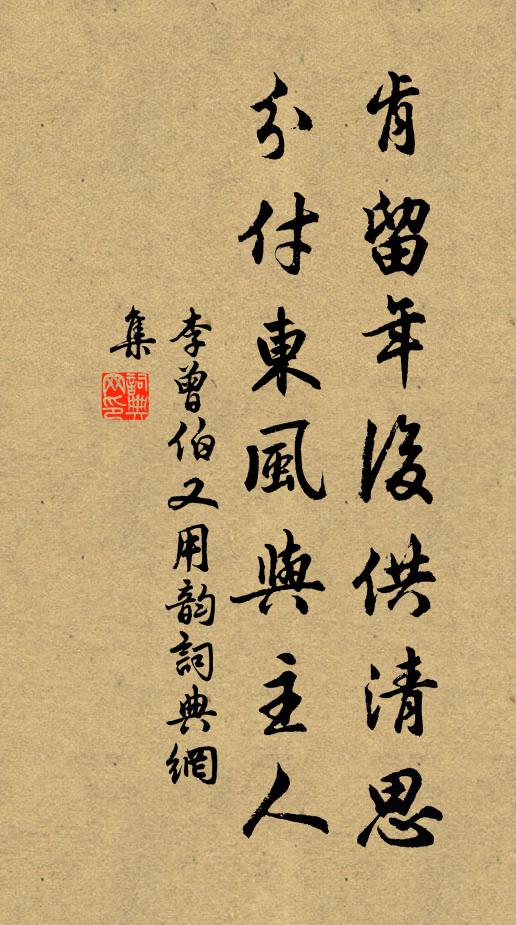 肯留年後供清思
分付東風與主人
李曾伯又用韵詞典網
集
詞典網印